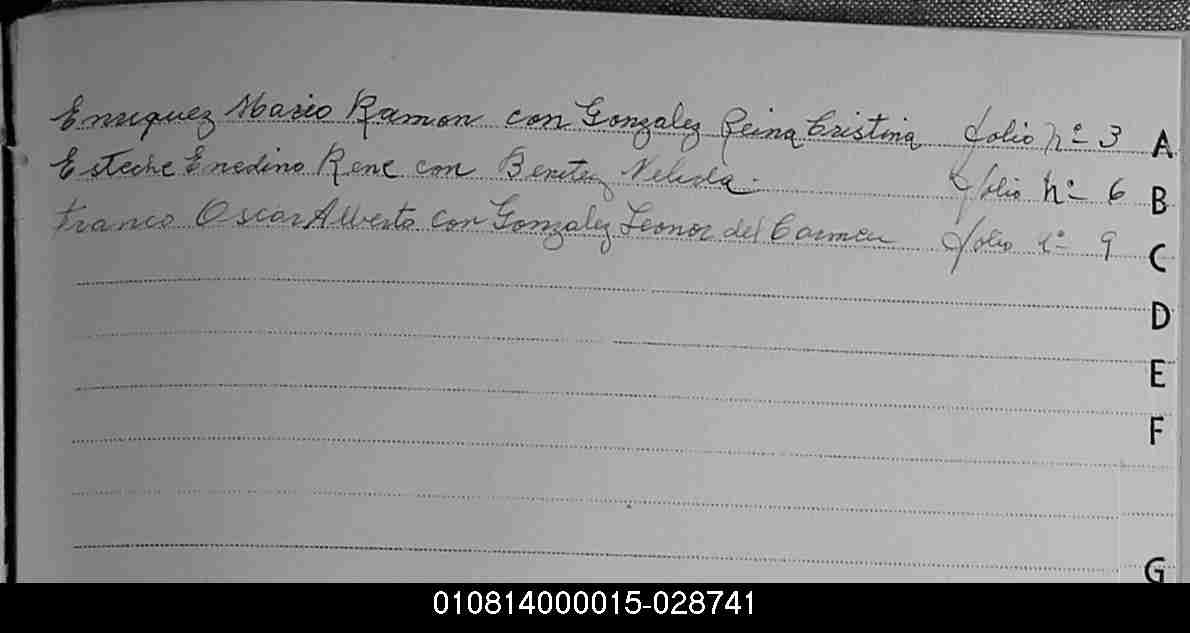 Enriquez Mario Ramon con Gonzalez Reina Cristina folio nº 3
Esteche Enedino Rene con Benitez Nelida. folio nº 6
Franco Oscar Alberto con Gonzalez Leonor del Carmen folio nº 9
A
B
C
D
E
F
G
010814000015-028741